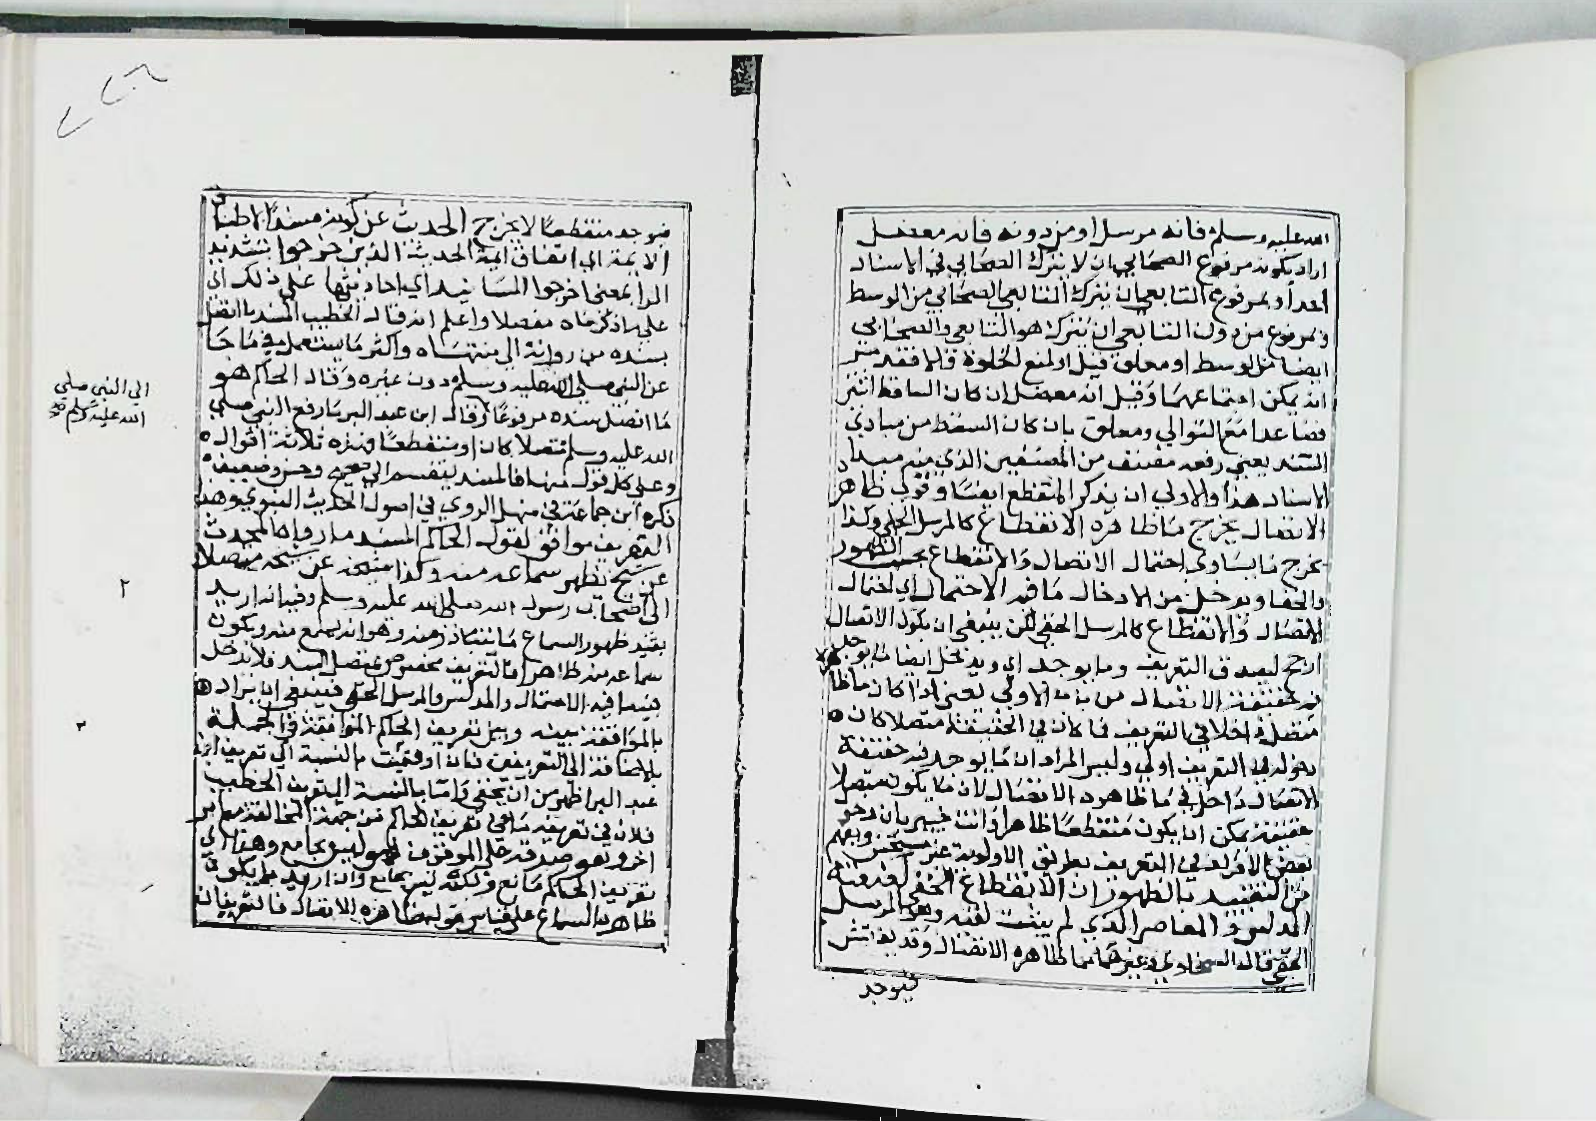 الله عليه وسلم فانه مرسل او من دونه فانه معضل
اراد بكونه مرفوع الصحابي ان لا يترك الصحابي في الاسناد
احدا وبمرفوع التابعي ان يترك التابعي الصحابي من الوسط
وبمرفوع من دون التابعي ان يترك هو التابعي والصحابي
ايضا من الوسط او معلق قيل او لمنع الخلوة والا فقد
انه يمكن اجتماعهما وقيل انه معضل ان كان الساقط اثنين
فصاعدا مع التوالي ومعلق بان كان السقط من مبادي
السند يعني رفعه مصنف من المصنفين الذي منه مبدا
الاسناد هذا والاولى ان يذكر المنقطع ايضا وقوله ظاهره
الاتصال يخرج ما ظاهره الانقطاع كالمرسل الجلي وكذا
يخرج ما يساوي احتمال الاتصال والانقطاع بحسب الظهور
والخفا ويدخل من الادخال ما فيه الاحتمال اي احتمال
الاتصال والانقطاع كالمرسل الخفي لكن ينبغي ان يكون الاتصال
ارجح ليصدق التعريف وما يوجد اي ويدخل ايضا ما يوجد
فيه حقيقة الاتصال من باب الاولى يعني اذا كان ما ظاهره
متصلا داخلا في التعريف فما كان في الحقيقة متصلا كان
دخوله في التعريف اولى وليس المراد ان ما يوجد فيه حقيقة
الاتصال داخل في ما ظاهره الاتصال لان ما يكون متصلا
حقيقة يمكن ان يكون منقطعا ظاهرا وانت خبير بان دخول
بعض الافراد في التعريف بطريق الاولوية غير مستحسن ويفهم
من التقييد بالظهور ان الانقطاع الخفي كعنعنة
المدلس والمعاصر الذي لم يثبت لقيه وهو المرسل
الخفي قال السخاوي وغيرهما مما ظاهره الاتصال وقد يفتش
فيوجد
فيوجد منقطعا لا يخرج الحديث عن كونه مسندا لاطباق
الائمة اي اتفاق ائمة الحديث الذين خرجوا بتشديد
الرا بمعنى اخرجوا المسانيد اي احاديثها على ذلك اي
على ما ذكرناه مفصلا واعلم انه قال الخطيب المسند ما اتصل
بسنده من رواية الى منتهاه واكثر ما يستعمل فيما جا
عن النبي صلى الله عليه وسلم دون غيره وقال الحاكم هو
ما اتصل سنده مرفوعا وقال ابن عبد البر ما رفع الى النبي صلى
الله عليه وسلم متصلا كان او منقطعا فهذه ثلاثة اقوال
وعلى كل قول منها فالمسند ينقسم الى صحيح وحسن وضعيف
ذكره ابن جماعة في منهل الروي في اصول الحديث النبوي وهذا
التعريف موافق لقول الحاكم المسند ما رواه المحدث
عن شيخ يظهر سماعه منه وكذا شيخه عن شيخه متصلا
الى اصحاب رسول الله صلى الله عليه وسلم وفيه انه اريد
بقيد ظهور السماع ما يتبادر منه وهو انه يسمع منه ويكون
سماعه منه ظاهرا فالتعريف مخصوص بمتصل السند فلا يدخل
فيه ما فيه الاحتمال والمدلس والمرسل الخفي فينبغي ان يراد
بالموافقة بينه وبين تعريف الحاكم الموافقة في الجملة
بالاضافة الى التعريفين فان اوفقيت بالنسبة الى تعريف ابن
عبد البر اظهر من ان تخفى واما بالنسبة الى تعريف الخطيب
فلان في تعريفه ما في تعريف الحاكم من جهة المخالفة مع امر
اخر وهو صدقه على الموقوف فهو ليس بجامع وهذا اي
تعريف الحاكم مانع ولكنه ليس بجامع وان اريد بما يكون
ظاهره السماع على قياس قوله مما ظاهره الاتصال فالتعريفان
الى النبي صلى
الله عليه وسلم صح
٢
٣